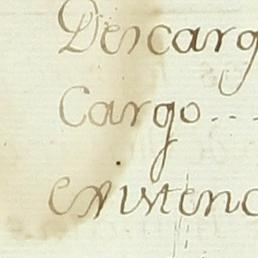 Descarg
Cargo...
existenc